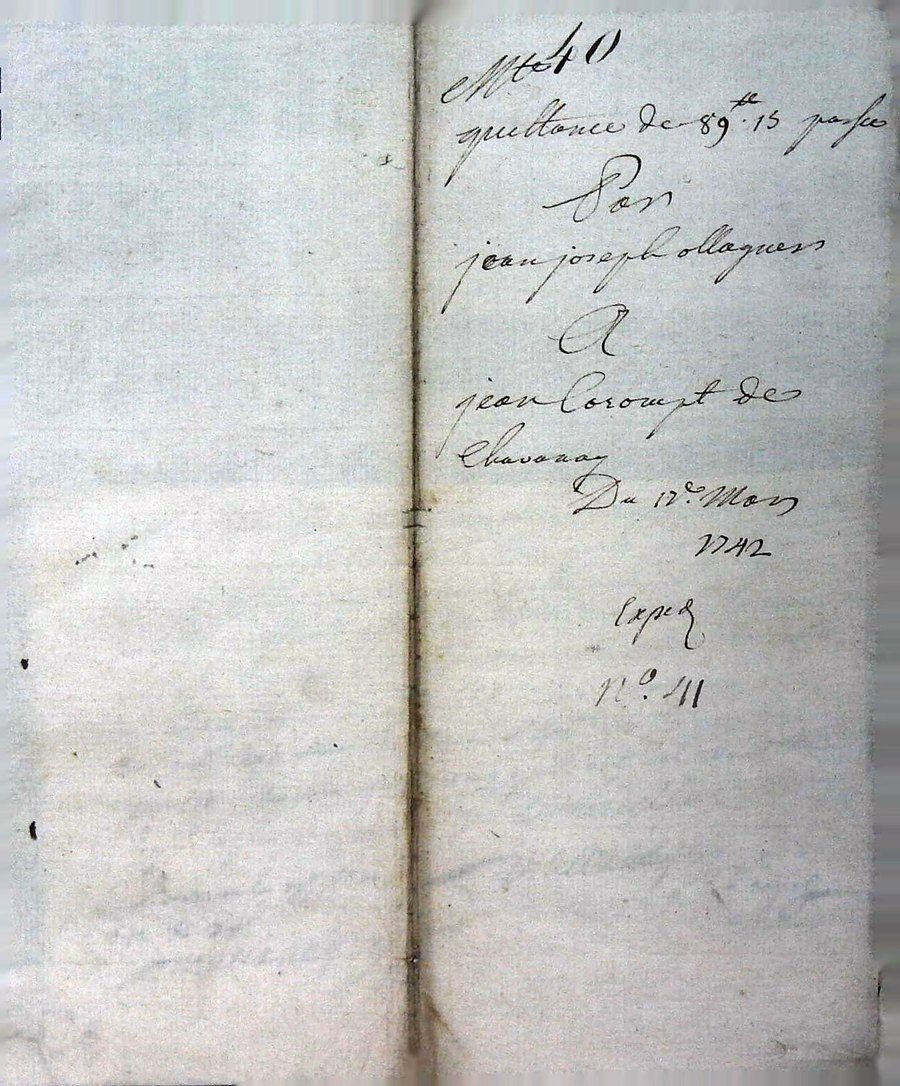 40
quittance de 89tt. 15 passée
Par
jean joseph ollagnier
A
jean Corompt de
Chavanay
Du 12e. Mars
1742
Exped
No. 41